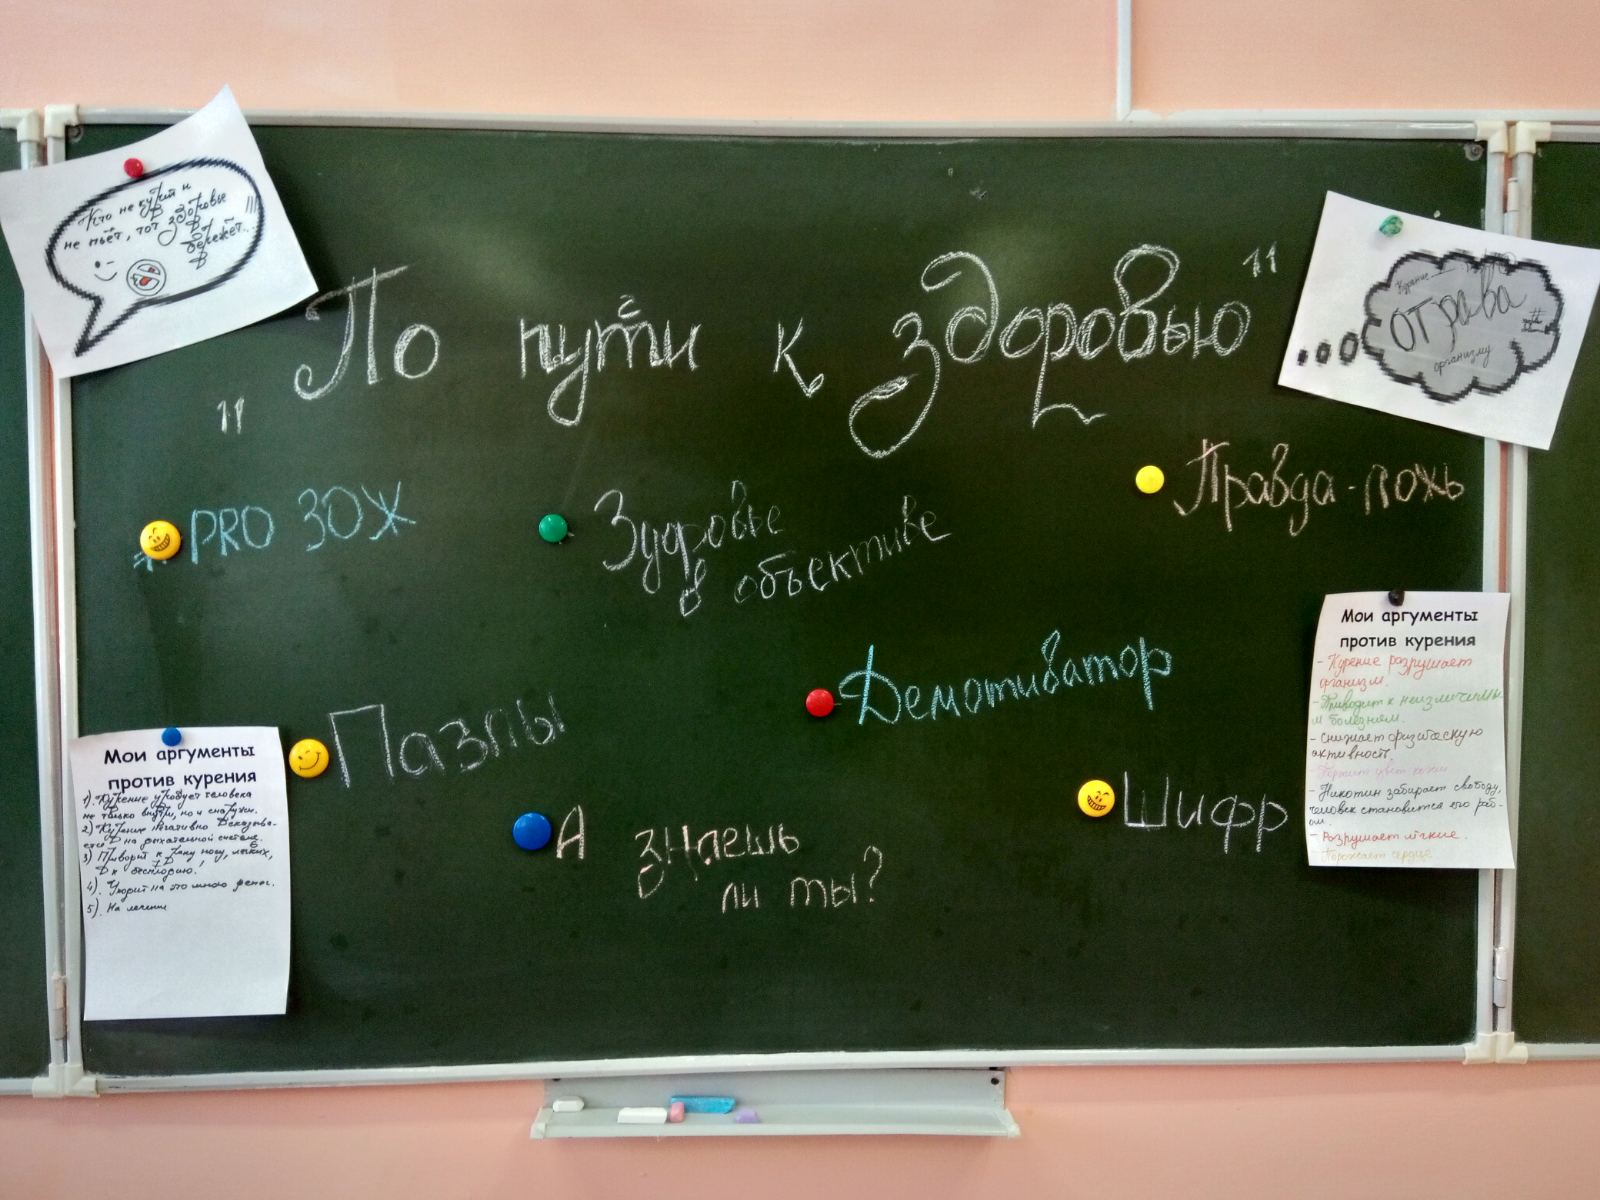 Кто не курит и
не пьёт, тот здоровье
бережёт...
„По пути к здоровью"
Курение —
отрава
организму
# PRO ЗОЖ
Здоровье
в объективе
Правда-ложь
Демотиватор
Пазлы
А знаешь
ли ты?
Шифр
Мои аргументы
против курения
1). Курение уродует человека
не только внутри, но и снаружи.
2) Курение негативно сказыва-
ется на дыхательной системе.
3) Приводит к раку
к бесплодию.
4). Уходит на это много денег.
5). На лечение
Мои аргументы
против курения
- Курение разрушает
организм.
- Приводит к неизлечимы
м болезням.
- Снижает физическую
активность.
- Портит цвет кожи
- Никотин забирает свободу,
человек становится его раб-
ом.
- Разрушает лёгкие.
- Поражает сердце